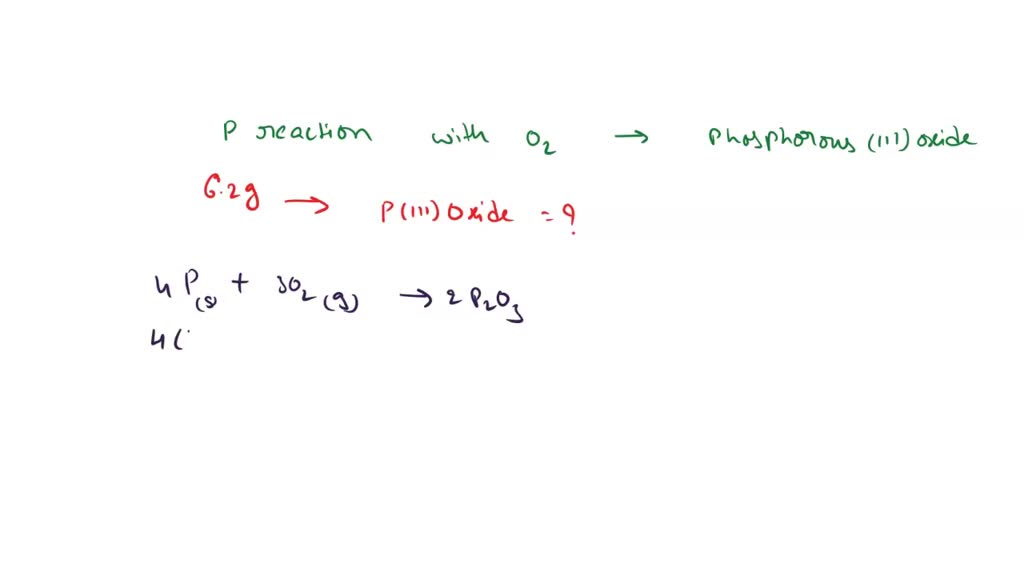 P reaction with O2 → Phosphorous (III) oxide
6.2g → P(III) Oxide = ?
4 P(s) + 3O2 (g) → 2 P2O3
4(